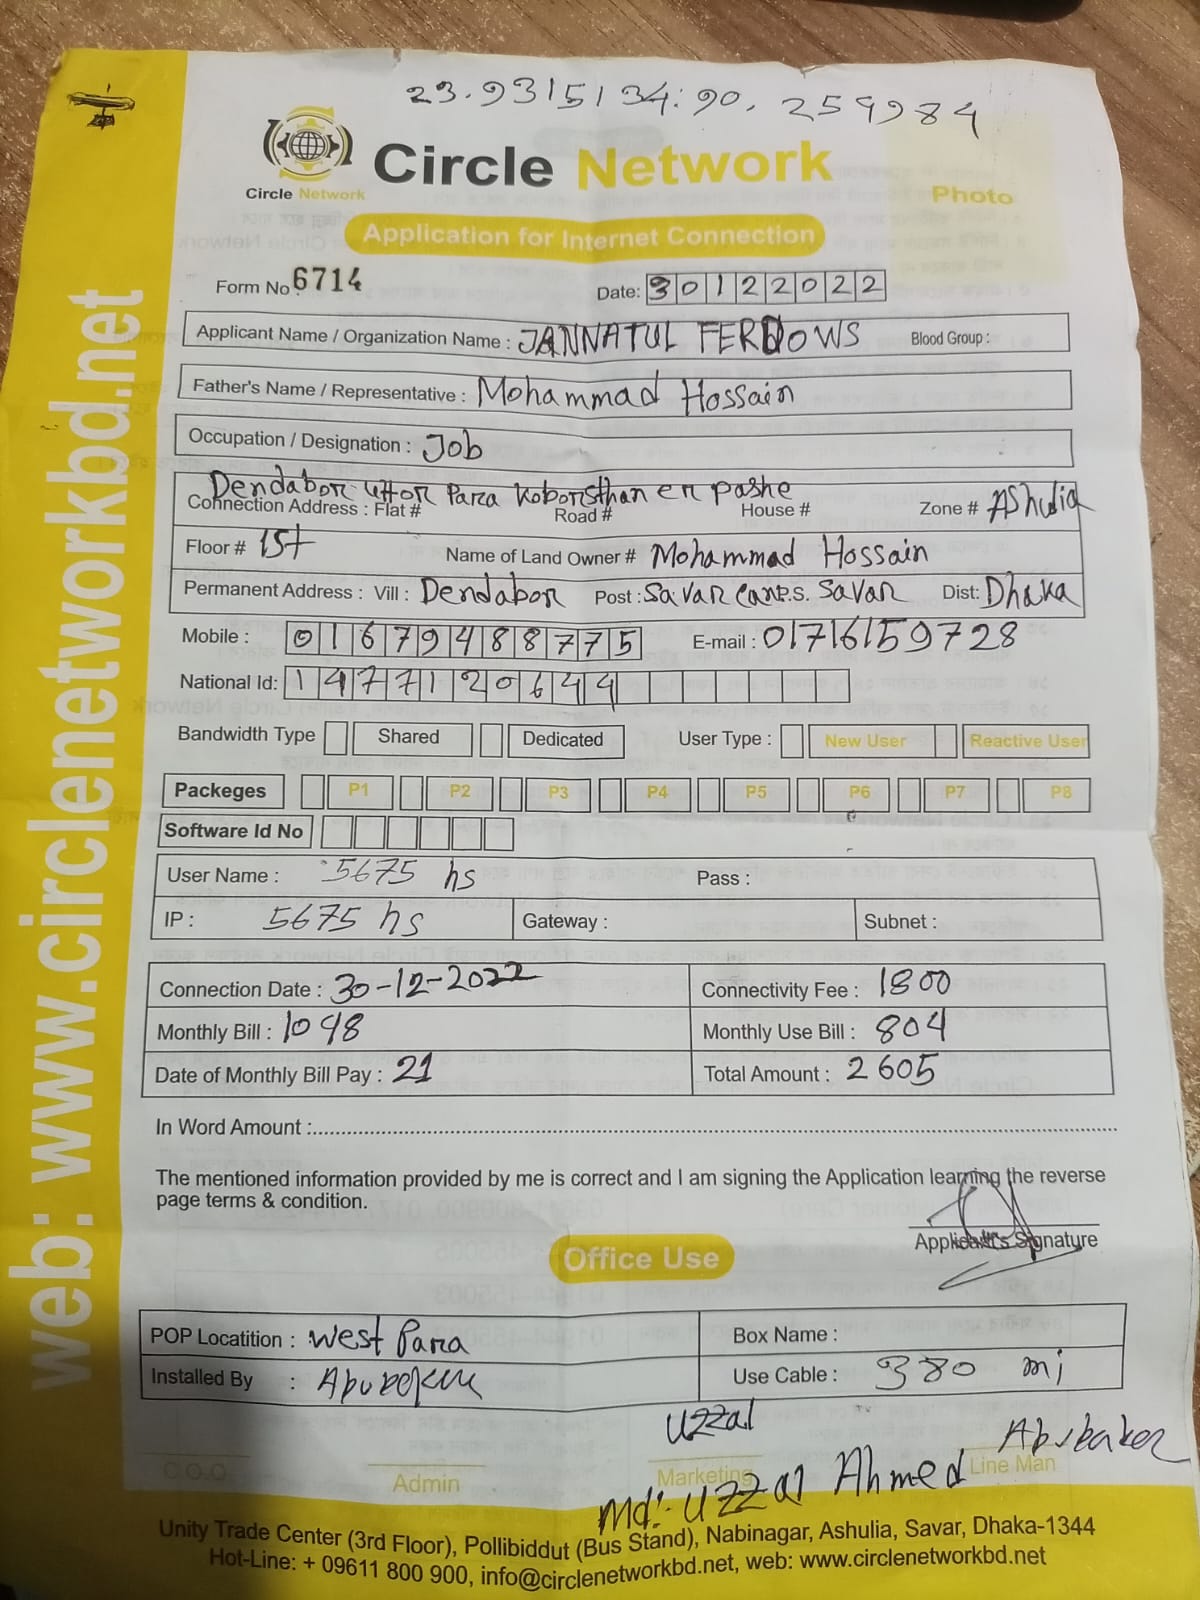 23.9315134:90.259984
Circle Network
Circle Network
Photo
Application for Internet Connection
Form No 6714
Date: 30122022
Applicant Name / Organization Name : JANNATUL FERDOWS Blood Group :
Father's Name / Representative : Mohammad Hossain
Occupation / Designation : Job
Dendabor uttor Para koborsthan er pashe
Connection Address : Flat # Road # House # Zone # Ashulia
Floor # 1st Name of Land Owner # Mohammad Hossain
Permanent Address : Vill : Dendabor Post : Savar Can P.S. Savar Dist: Dhaka
Mobile : 01679488775 E-mail : 01716159728
National Id: 1477120644
Bandwidth Type Shared Dedicated User Type : New User Reactive User
Packeges P1 P2 P3 P4 P5 P6 P7 P8
Software Id No
User Name : 5675 hs Pass :
IP : 5675 hs Gateway : Subnet :
Connection Date : 30-12-2022 Connectivity Fee : 1800
Monthly Bill : 1048 Monthly Use Bill : 804
Date of Monthly Bill Pay : 21 Total Amount : 2605
In Word Amount :
The mentioned information provided by me is correct and I am signing the Application learning the reverse
page terms & condition.
Applicant's Signature
Office Use
POP Locatition : West Para Box Name :
Installed By : Abubokor Use Cable : 380 mi
Uzzal
Abubaker
C.O.O Admin Marketing Line Man
Md:- Uzzal Ahmed
Unity Trade Center (3rd Floor), Pollibiddut (Bus Stand), Nabinagar, Ashulia, Savar, Dhaka-1344
Hot-Line: + 09611 800 900, info@circlenetworkbd.net, web: www.circlenetworkbd.net
web: www.circlenetworkbd.net